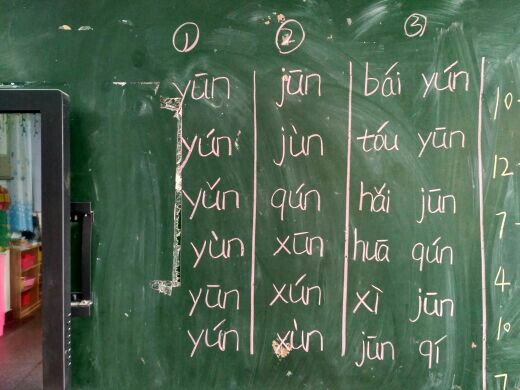 ① ② ③
yūn jūn bái yún 10
yún jùn tóu yūn 12
yǔn qún hǎi jūn 7
yùn xūn huā qún 4
yūn xún xì jūn 10
yún xùn jūn qí 7